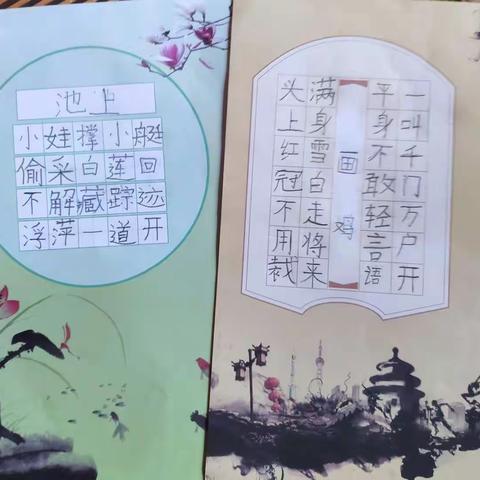 池上
小娃撑小艇
偷采白莲回
不解藏踪迹
浮萍一道开
画鸡
头上红冠不用裁
满身雪白走将来
平身不敢轻言语
一叫千门万户开